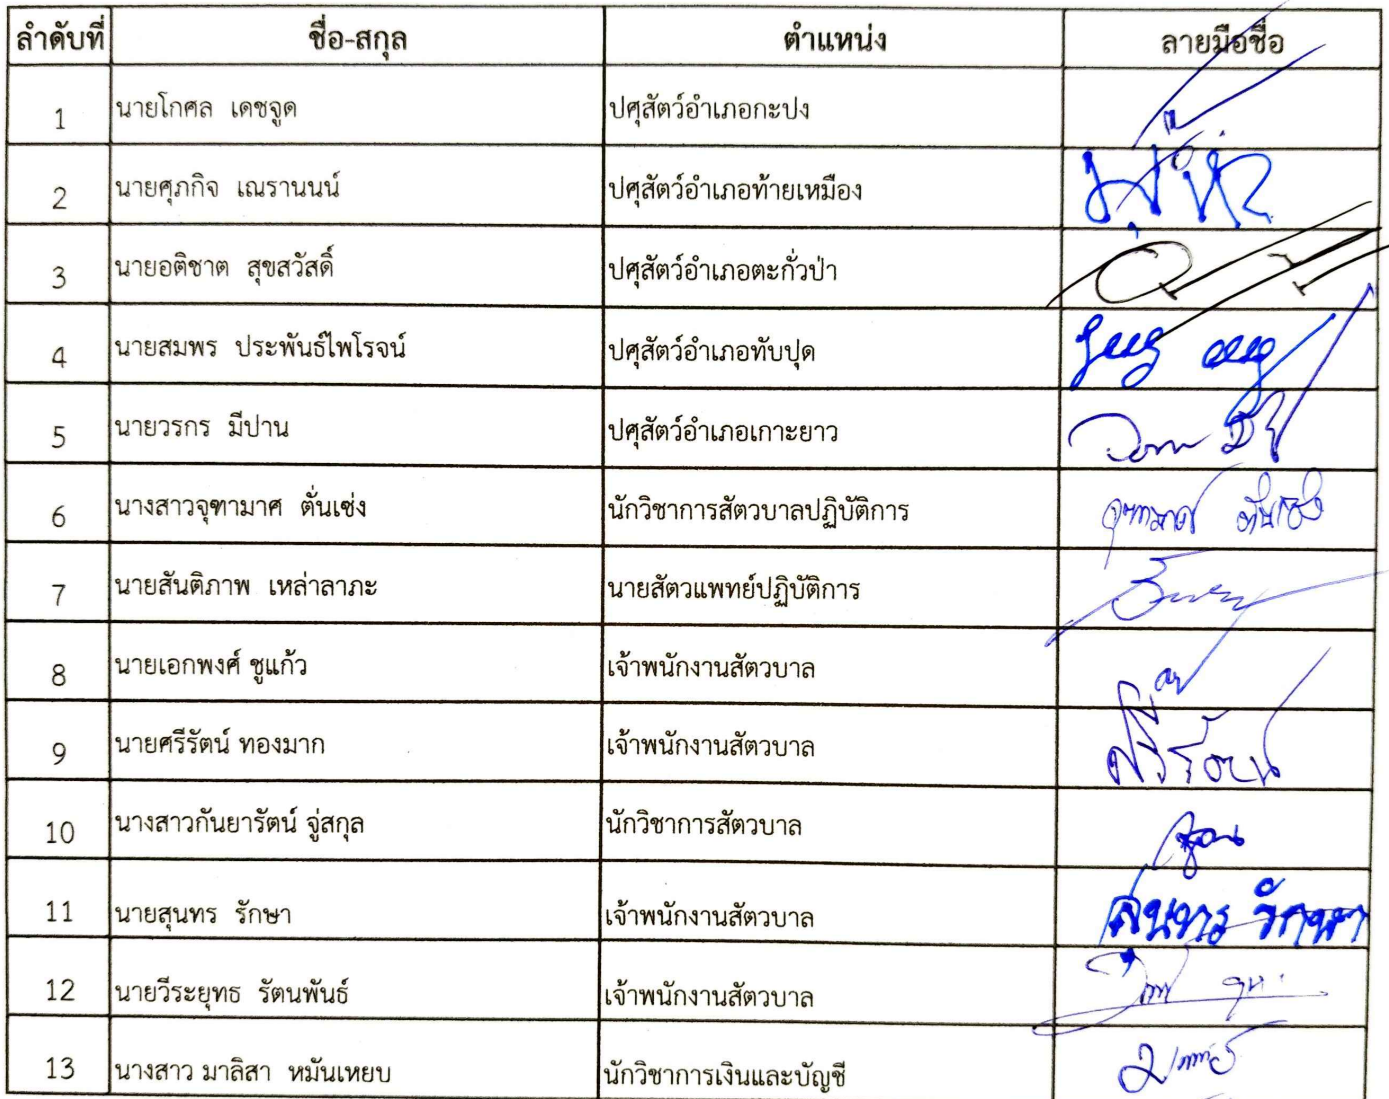 ลำดับที่ ชื่อ-สกุล ตำแหน่ง ลายมือชื่อ
1 นายโกศล เดชจูด ปศุสัตว์อำเภอกะปง
2 นายศุภกิจ เณรานนน์ ปศุสัตว์อำเภอท้ายเหมือง
3 นายอติชาต สุขสวัสดิ์ ปศุสัตว์อำเภอตะกั่วป่า
4 นายสมพร ประพันธ์ไพโรจน์ ปศุสัตว์อำเภอทับปุด
5 นายวรกร มีปาน ปศุสัตว์อำเภอเกาะยาว
6 นางสาวจุฑามาศ ตั่นเซ่ง นักวิชาการสัตวบาลปฏิบัติการ จุฑามาศ ตั่นเซ่ง
7 นายสันติภาพ เหล่าลาภะ นายสัตวแพทย์ปฏิบัติการ
8 นายเอกพงศ์ ชูแก้ว เจ้าพนักงานสัตวบาล
9 นายศรีรัตน์ ทองมาก เจ้าพนักงานสัตวบาล ศรีรัตน์
10 นางสาวกันยารัตน์ จู่สกุล นักวิชาการสัตวบาล
11 นายสุนทร รักษา เจ้าพนักงานสัตวบาล สุนทร รักษา
12 นายวีระยุทธ รัตนพันธ์ เจ้าพนักงานสัตวบาล
13 นางสาว มาลิสา หมันเหยบ นักวิชาการเงินและบัญชี